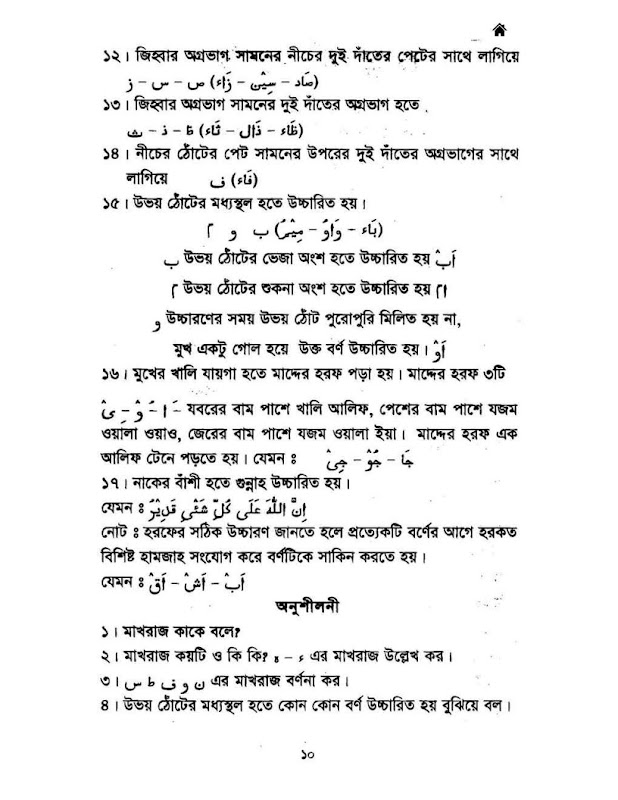 ১২। জিহ্বার অগ্রভাগ সামনের নীচের দুই দাঁতের পেটের সাথে লাগিয়ে
ز – س – ص (صَاد – سِيْن – زَاء)
১৩। জিহ্বার অগ্রভাগ সামনের দুই দাঁতের অগ্রভাগ হতে
ث – ذ – ظ (ظَاء – ذَال – ثَاء)
১৪। নীচের ঠোঁটের পেট সামনের উপরের দুই দাঁতের অগ্রভাগের সাথে
লাগিয়ে ف (فَاء)
১৫। উভয় ঠোঁটের মধ্যস্থল হতে উচ্চারিত হয়।
م و ب (بَاء – وَاوْ – مِيْمْ)
ب উভয় ঠোঁটের ভেজা অংশ হতে উচ্চারিত হয় اَبْ
م উভয় ঠোঁটের শুকনা অংশ হতে উচ্চারিত হয় اَمْ
و উচ্চারণের সময় উভয় ঠোঁট পুরোপুরি মিলিত হয় না,
মুখ একটু গোল হয়ে উক্ত বর্ণ উচ্চারিত হয়। اَوْ
১৬। মুখের খালি যায়গা হতে মাদ্দের হরফ পড়া হয়। মাদ্দের হরফ ৩টি
ـَ ا – ـُ وْ – ـِ ىْ – যবরের বাম পাশে খালি আলিফ, পেশের বাম পাশে যজম
ওয়ালা ওয়াও, জেরের বাম পাশে যজম ওয়ালা ইয়া। মাদ্দের হরফ এক
আলিফ টেনে পড়তে হয়। যেমন ঃ جَا – جُوْ – جِىْ
১৭। নাকের বাঁশী হতে গুন্নাহ উচ্চারিত হয়।
যেমন ঃ اِنَّ اللّٰهَ عَلَى كُلِّ شَىْءٍ قَدِيْرٌ
নোট ঃ হরফের সঠিক উচ্চারণ জানতে হলে প্রত্যেকটি বর্ণের আগে হরকত
বিশিষ্ট হামজাহ সংযোগ করে বর্ণটিকে সাকিন করতে হয়।
যেমন ঃ اَبْ – اَشْ – اَقْ
অনুশীলনী
১। মাখরাজ কাকে বলে?
২। মাখরাজ কয়টি ও কি কি? ء – ه এর মাখরাজ উল্লেখ কর।
৩। ن و ف ط س এর মাখরাজ বর্ণনা কর।
৪। উভয় ঠোঁটের মধ্যস্থল হতে কোন কোন বর্ণ উচ্চারিত হয় বুঝিয়ে বল।
১০